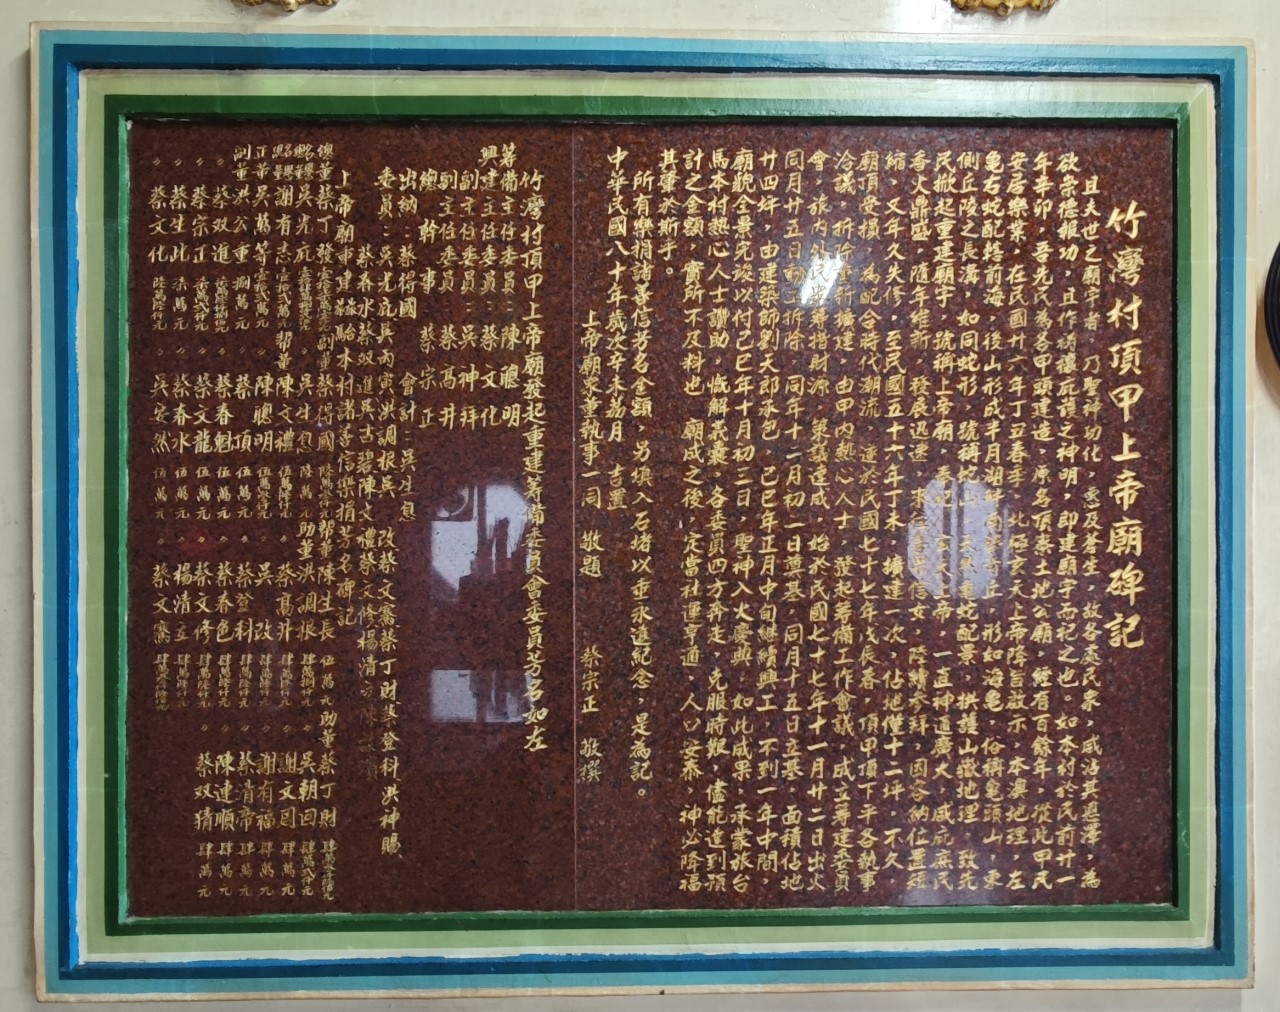 竹灣村頂甲上帝廟碑記
且夫世之廟宇者，乃聖神功化，惠及蒼生，故各處民家，咸沾其恩澤，為
欲崇德報功，且作祈禳庇護之神明，即建廟宇而祀之也。如本村於民前廿一
年辛卯，吾先民為各甲頭建造，原名頂蔡土地公廟，經有百餘年，從此甲民
安居樂業，在民國廿六年丁丑春季，此極玄天上帝降旨啟示，本澳地理，左
龜右蛇配轄前海，後山形成半月湖 形如海龜，俗稱龜頭山，東
側丘陵之長溝，如同蛇形，號稱蛇山 龜蛇配景，拱護山嶽地理，致先
民掀起重建廟宇，號稱上帝廟，奉祀 玄天上帝，一直神道廣大，威庇庶民
香火鼎盛，隨年維新，發展迅速 信女，陸續參拜，因容納位置短
縮，又年久失修，至民國五十六年丁未，擴建一次，佔地僅十二坪，不久
廟頂受損，為配合時代潮流，遂於民國七十七年戊辰春，頂甲頂下平各執事
洽議，拆除重新擴建，由甲內熱心人士，發起籌備工作會議，成立籌建委員
會，旅內外民 籌措財源，策議達成，始於民國七十七年十一月廿二日出火
同月廿五日動工拆除，同年十二月初一日奠基，同月十五日立基，面積佔地
廿四坪，由建築師劉天郎承包，己巳年正月中旬繼續興工，不到一年中間，
廟貌全景完竣以付己巳年十月初二日，聖神入火慶典，如此成果，承蒙旅台
馬本村熱心人士讚助，慨解義囊，各委員四方奔走，克服時艱，儘能達到預
計之金額，實所不及料也，廟成之後，定當社運亨通，人口安泰，神必降福
其肇於斯乎。
所有樂捐諸善信芳名金額，另填入石堵以垂永遠紀念，是為記。
中華民國八十年歲次辛未荔月 吉置
上帝廟眾董執事一同 敬題 蔡宗正 敬撰
竹灣村頂甲上帝廟發起重建籌備委員會委員芳名如左
籌備主任委員：陳聰明
興建主任委員：蔡文化
副主任委員：吳神拜
副主任委員：蔡高升
總幹事 蔡宗正
出納：蔡得國 會計：吳生息
委員：吳光庇吳兩寅洪調根吳 改蔡文騫蔡丁財蔡登科洪神賜
蔡春水蔡双進吳古碧陳文禮蔡文修楊清立陳
上帝廟重建 本村諸善信樂捐芳名碑記
總董蔡丁發 副董蔡得國 幫董陳生長 伍萬元 助董蔡丁財
吳光庇 吳生息 助董洪調根 吳朝回
謝有志 幫董陳文禮 蔡高升 謝文回 肆萬元
正董吳萬等 陳聰明 吳 改 謝有福 肆萬元
副董洪公重 捌萬元 蔡 頂 蔡登利 蔡清帝 肆萬元
〃 蔡双進 〃 蔡春魁 〃 蔡春色 陳連順 肆萬元
〃 蔡宗正 〃 蔡文龍 伍萬元 〃 蔡文修 〃 蔡双猜 肆萬元
〃 蔡生此 〃 蔡春水 伍萬元 〃 楊清立
〃 蔡文化 〃 吳安然 伍萬元 〃 蔡文騫